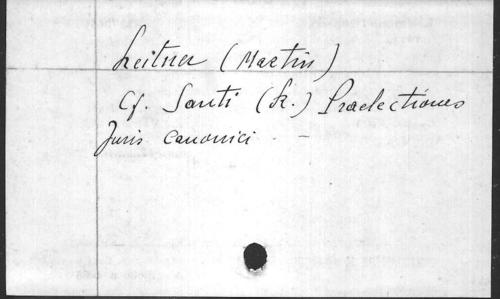 Leitner (Martin)
Cf. Santi (Fr.) Praelectiones
Juris canonici -